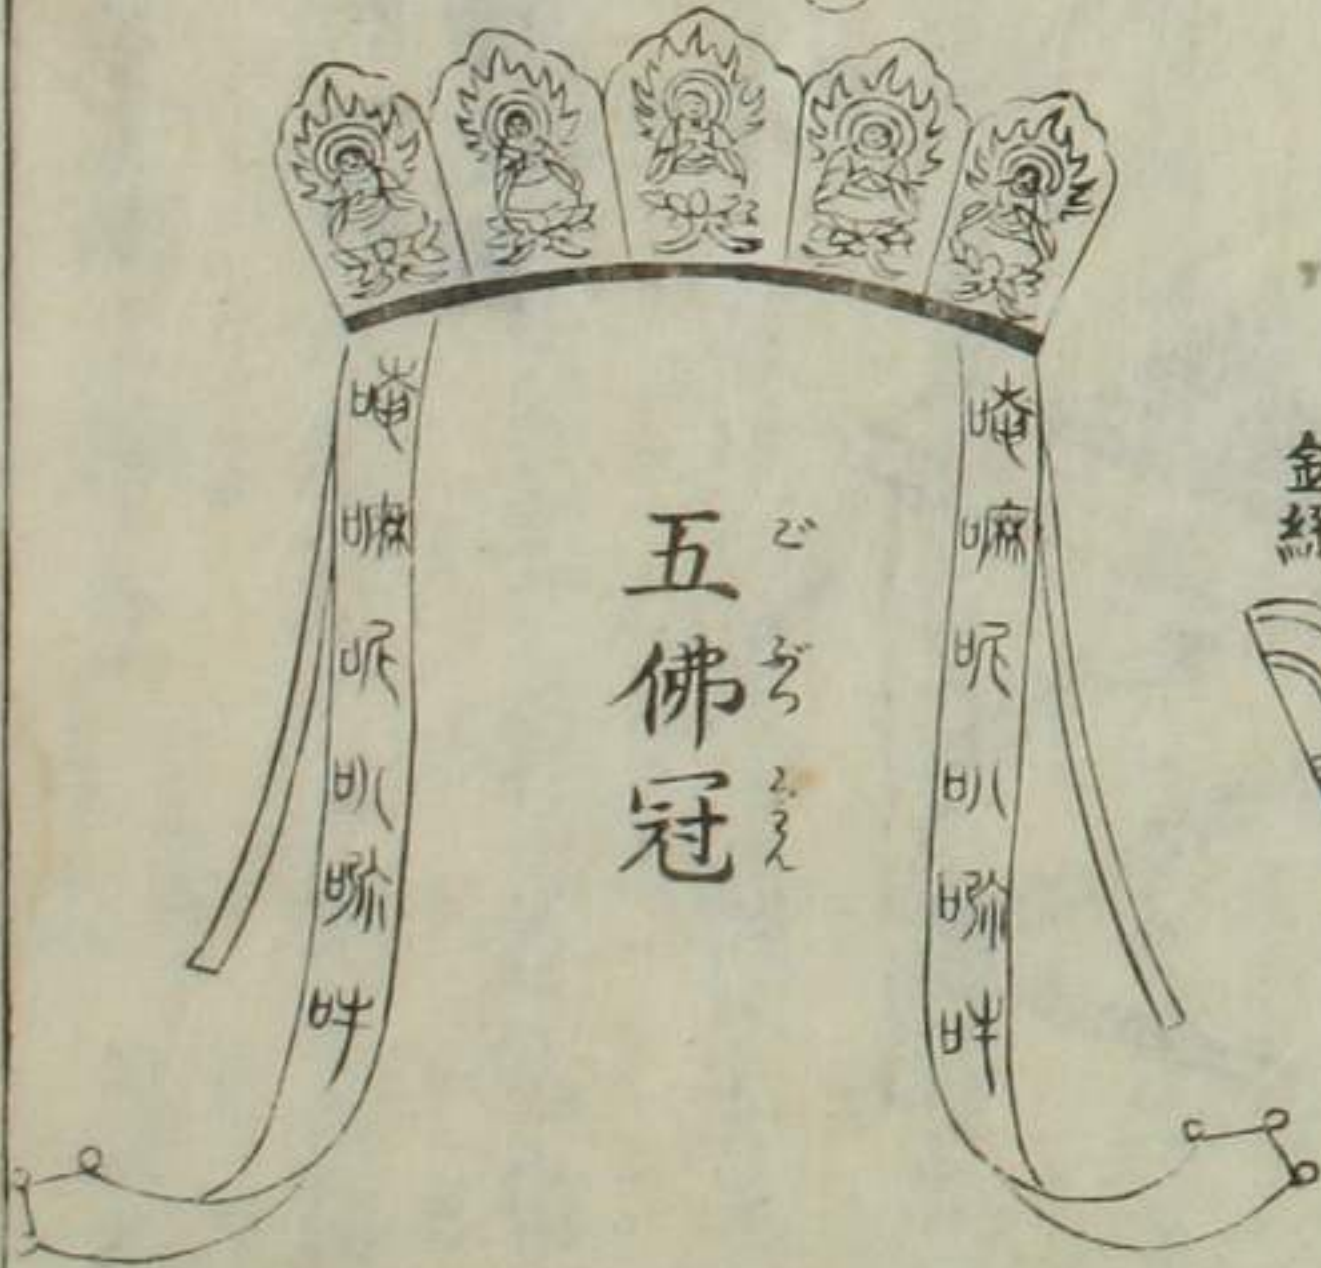 唵嘛呢叭㖇吽
五佛冠
ごぶつくわん
唵嘛呢叭㖇吽